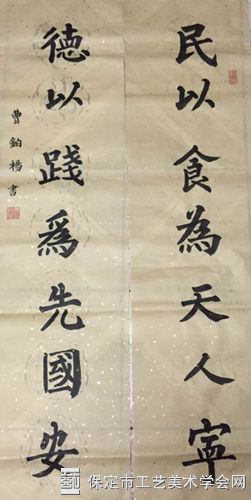 民以食為天人寧
德以踐爲先國安
曹鈞楊書
保定市工艺美术学会网